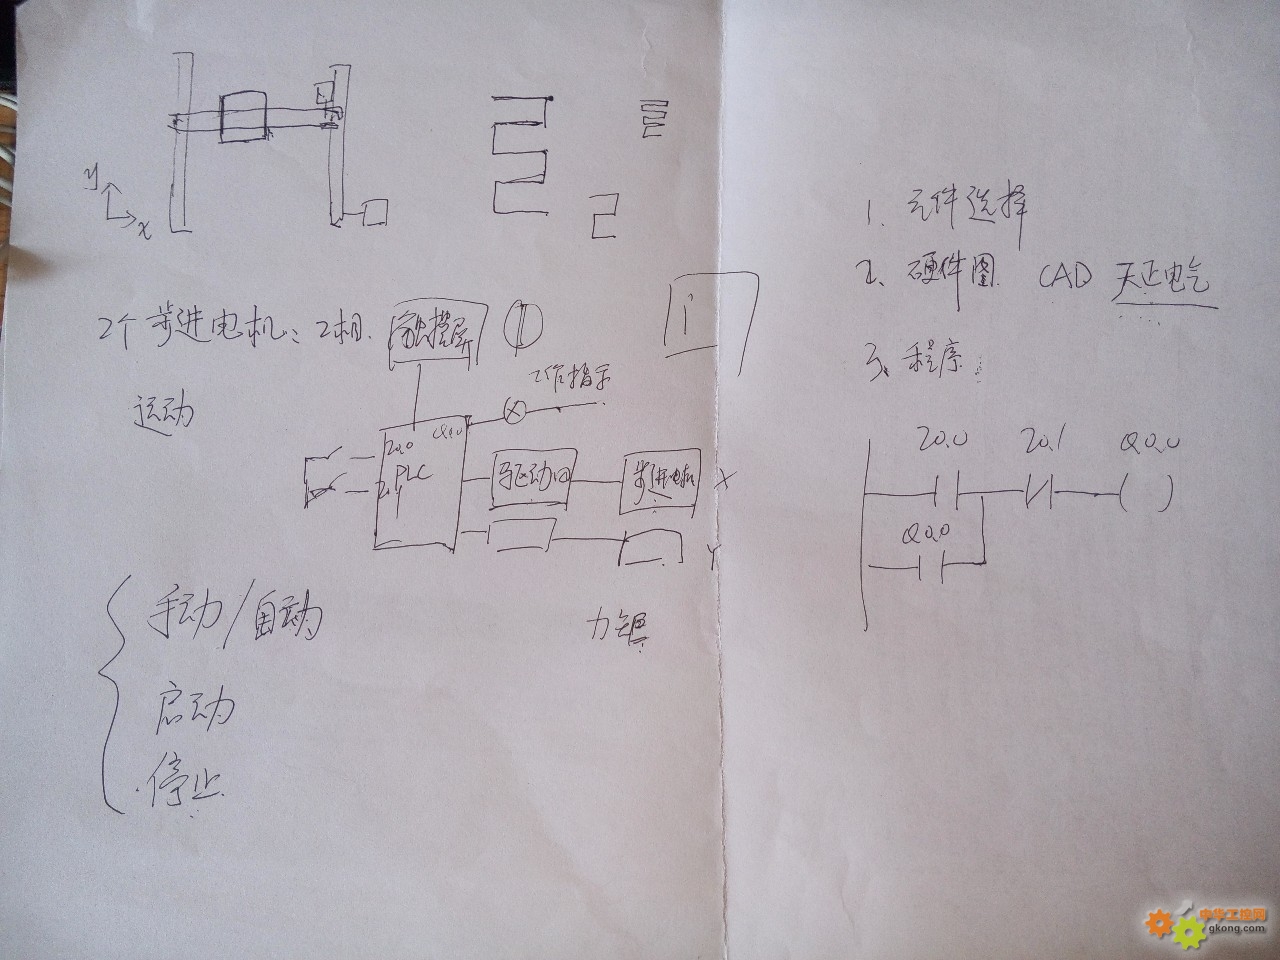 y
x
2个步进电机、2相.
触摸屏
运动
工作指示
I0.0 Q0.0
PLC
I0.1
驱动
步进电机
X
Y
手动/自动
力矩
启动
停止
1. 元件选择
2、硬件图 CAD 天正电气
3、程序
I0.0 I0.1 Q0.0
Q0.0
中华工控网
gkong.com